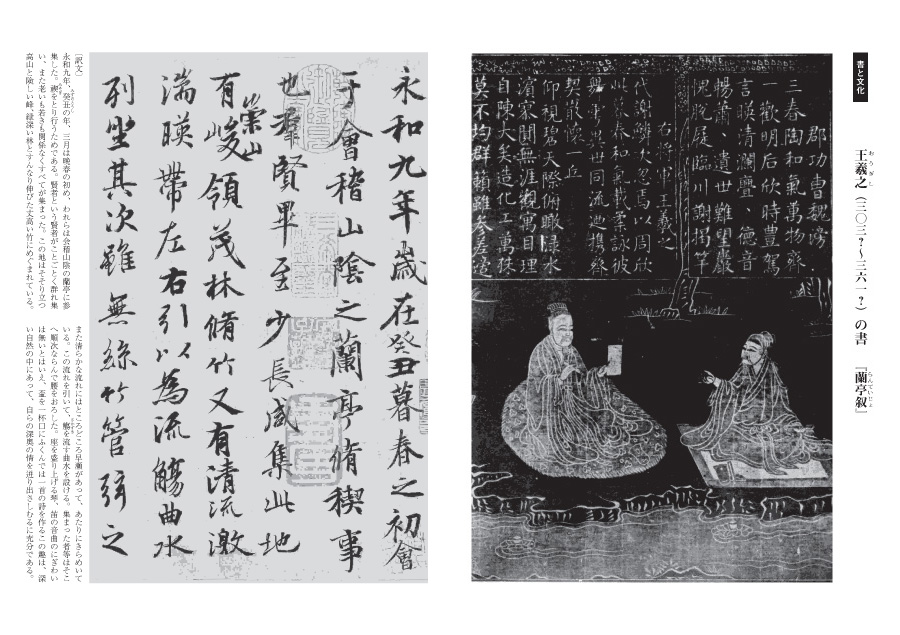 書と文化
王羲之（三〇三？～三六一？）の書　『蘭亭叙』
おうぎし
らんていじょ
郡功曹魏滂
三春陶和氣萬物齊
歡明后欣時豊駕
言暎清瀾亹〻德音
暢蕭〻遺世難望巖
愧脫屣臨川謝揭竿
右將軍王羲之
代謝鱗次忽焉以周欣
此暮春和氣載柔詠彼
舞雩異世同流迺携齊
契散懷一丘
仰視碧天際俯瞰淥水
濱寥閴無涯觀寓目理
自陳大矣造化工萬殊
莫不均群籟雖參差
永和九年歲在癸丑暮春之初會
于會稽山陰之蘭亭脩稧事
也羣賢畢至少長咸集此地
有崇山峻領茂林脩竹又有清流激
湍暎帶左右引以為流觴曲水
列坐其次雖無絲竹管弦之
［訳文］
永和九年、癸丑の年、三月は晩春の初め、われらは会稽山陰の蘭亭に参
みずのとうし
集した。禊をとり行うためである。賢者という賢者がことごとく群れ集
い、また老いも若きも関係なくすべてが集まった。この地はそそり立つ
高山と険しい峰、緑深い林とすんなり伸びた丈高い竹にめぐまれている。
また清らかな流れにはところどころ早瀬があって、あたりにきらめいて
いる。この流れを引いて、觴を流す曲水を設ける。集まった者等はそこ
へ順次ならんで腰をおろした。座を盛り上げる琴、笛の音曲のにぎわい
は無いとはいえ、盃を一杯口にふくんでは一首の詩を作るこの趣は、深
い自然の中にあって、自らの深奥の情を迸り出さしむるに充分である。